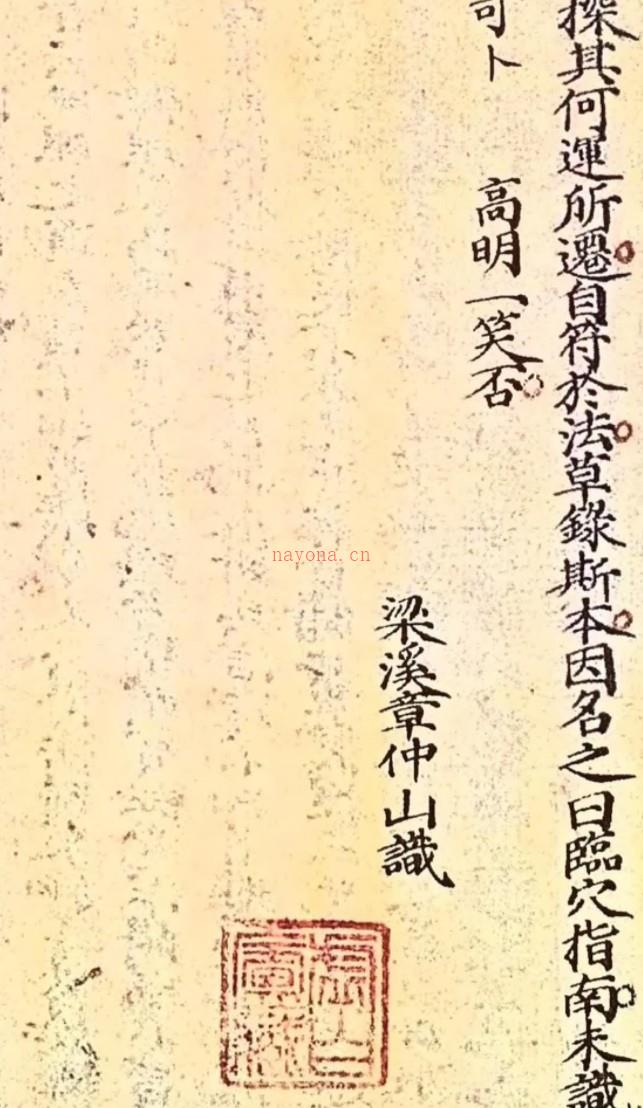 操其何運所遷自符於法草錄斯本因名之曰臨穴指南未識
可卜　高明一笑否
梁溪章仲山識
nayona.cn